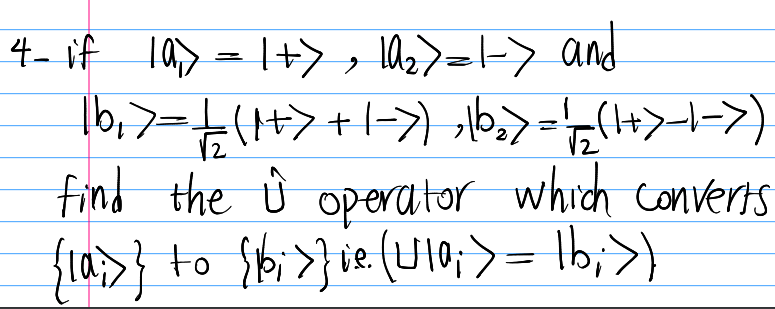 4- if |a₁> = |+> , |a₂>=|-> and
|b₁>=1/√2(|+> + |->) ,|b₂>=1/√2(|+>-|->)
find the Û operator which converts
{|aᵢ>} to {|bᵢ>} i.e.(U|aᵢ> = |bᵢ>)